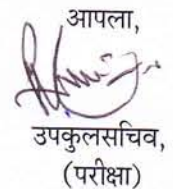 आपला,
उपकुलसचिव,
(परीक्षा)